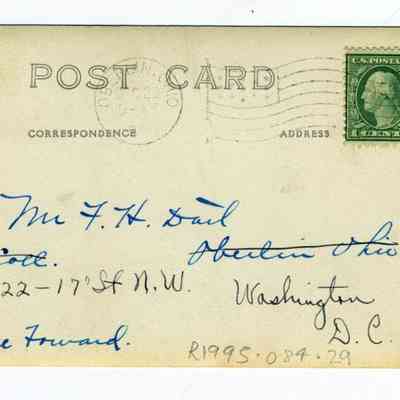 POST CARD
CORRESPONDENCE ADDRESS
U.S. POSTA
1 CENT
Mr F. H. Dart
Oberlin Ohio
22-17' St N.W. Washington
D. C.
Forward.
R1995.084.29